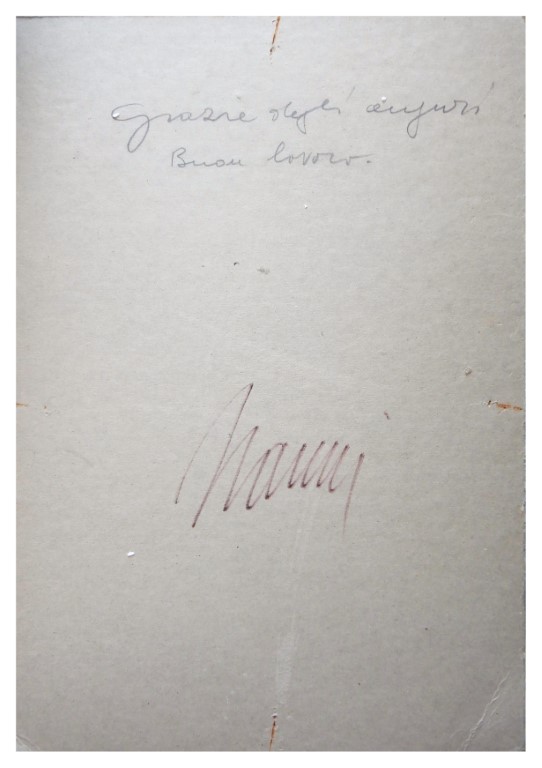 Grazie degli auguri
Buon lavoro.
Nanni